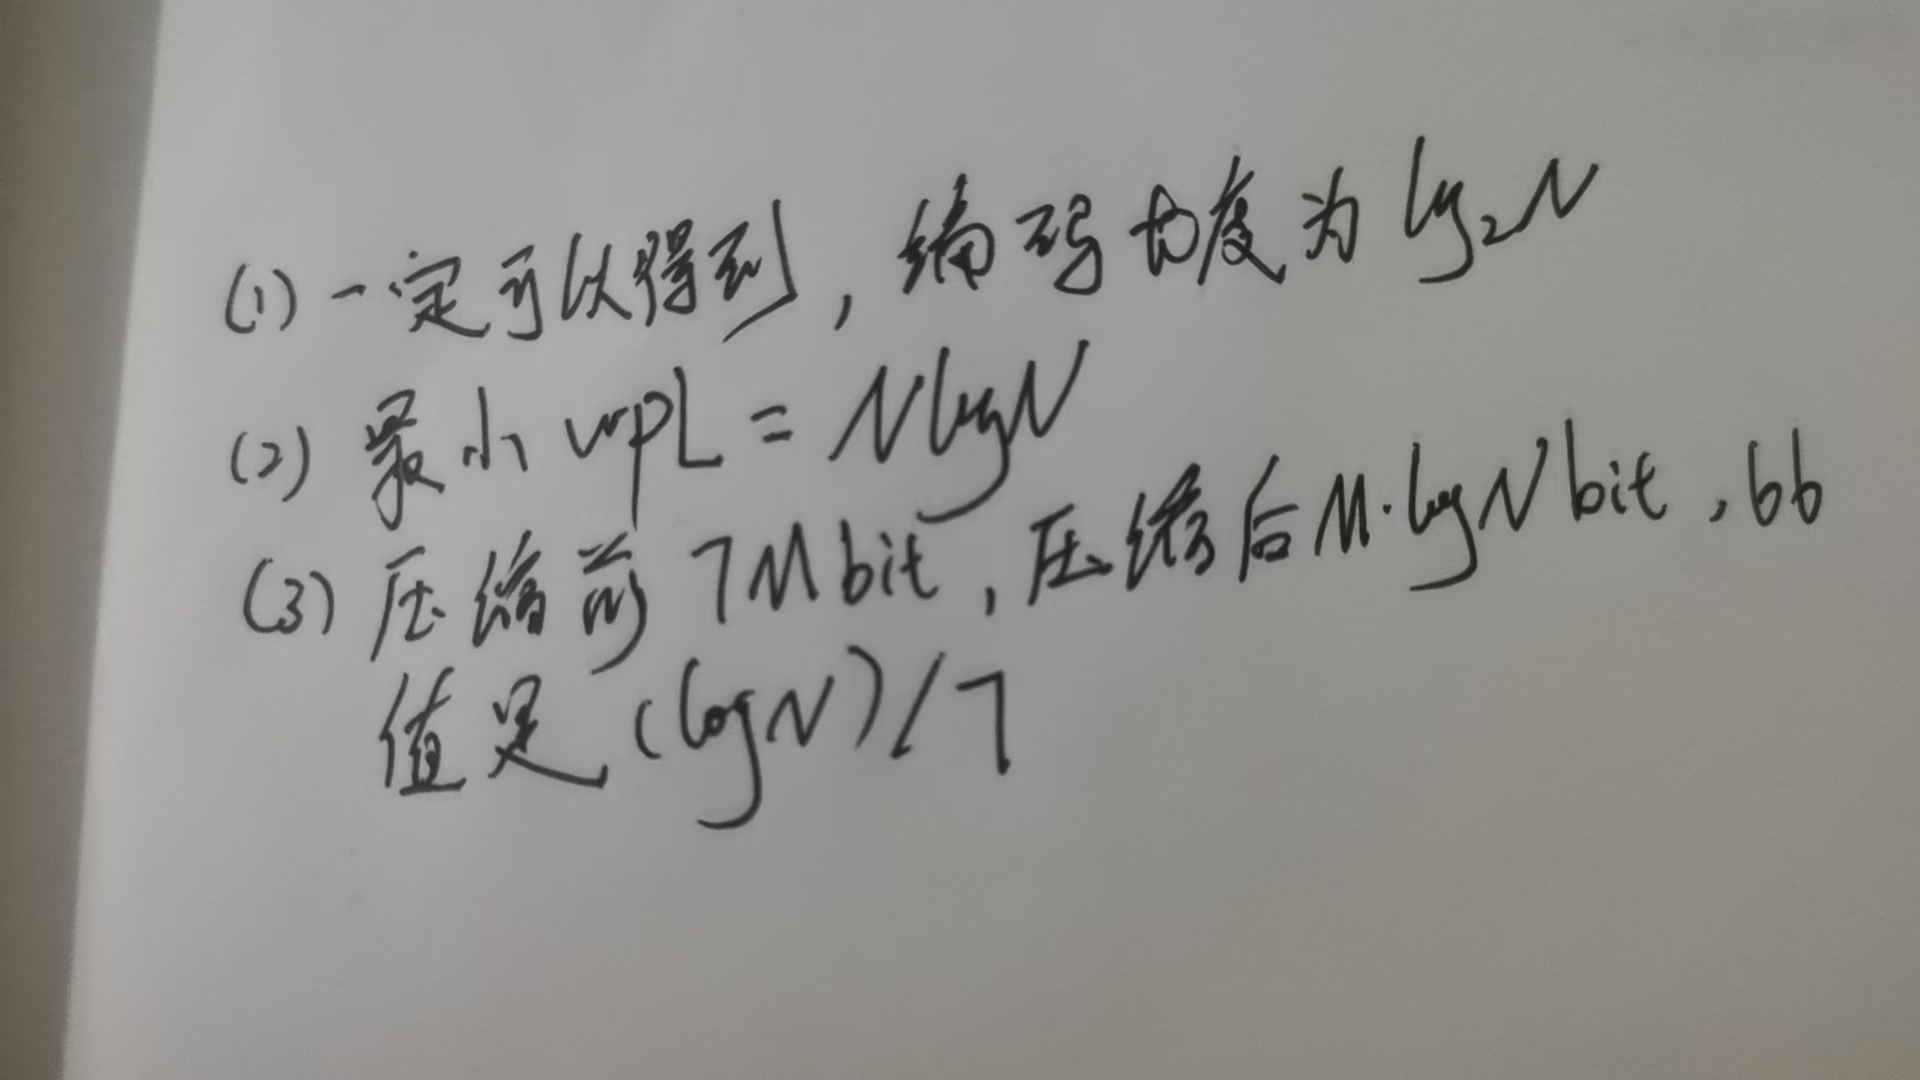 (1) 一定可以得到，编码长度为 log₂N
(2) 最小 WPL = NlogN
(3) 压缩前 7M bit，压缩后 M·logN bit，比
值是 (logN)/7